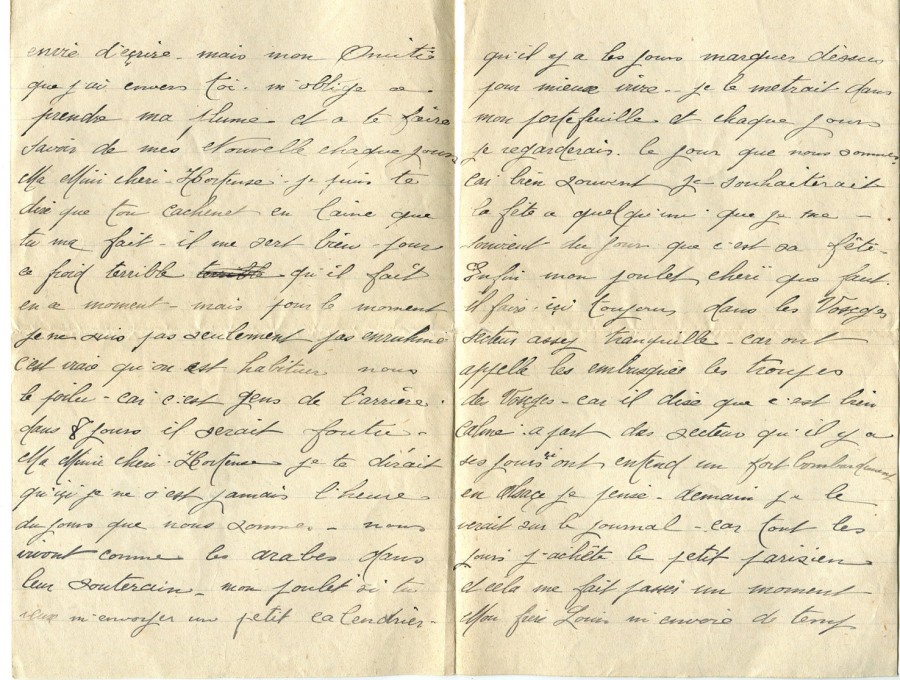 envie d'écrire - mais mon Amitié
que j'ai envers toi. m'oblige a
prendre ma plume et a te faire
savoir de mes Nouvelle chaque jours
Ma Mimi cheri - Hortense - je puis te
dire que ton cachenet en laine que
tu ma fait - il me sert bien - pour
ce froid terrible qu'il fait
en ce moment - mais pour le moment
je ne suis pas seulement pas enrhumé
c'est vrais qu'on est habituer nous
le poilu - car c'est gens de l'arrière.
dans 8 jours il serait foutu -
Ma Mimi cheri - Hortense je te dirait
qu'içi je ne s'est jamais l'heure
du jours que nous sommes - nous
vivont comme les arabes dans
leur souterain - mon poulet si tu
veux m'envoyer un petit calendrier -
qu'il y a les jours marquer dessus
pour mieux vivre - je le metrait dans
mon portefeuille et chaque jours
je regarderais. le jour que nous sommes
car bien souvent je souhaiterait
la fête a quelqu'un. que je me -
souvient du jour que c'est sa fête -
Enfin mon poulet cheri que faut.
il faire. içi toujours dans les Vosges
secteur assez tranquille - car ont
appelle les embusquée les troupes
des Vosges - car il dise que c'est bien
Calme - a part des secteur qu'il y a
ses jours ci ont entend un fort bombardement
en Alsaçe je pense - demain je le
verait sur le journal - car tout les
jours j'achète le petit parisien
et cela me fait passer un moment
Mon frère Louis m'envoie de temp